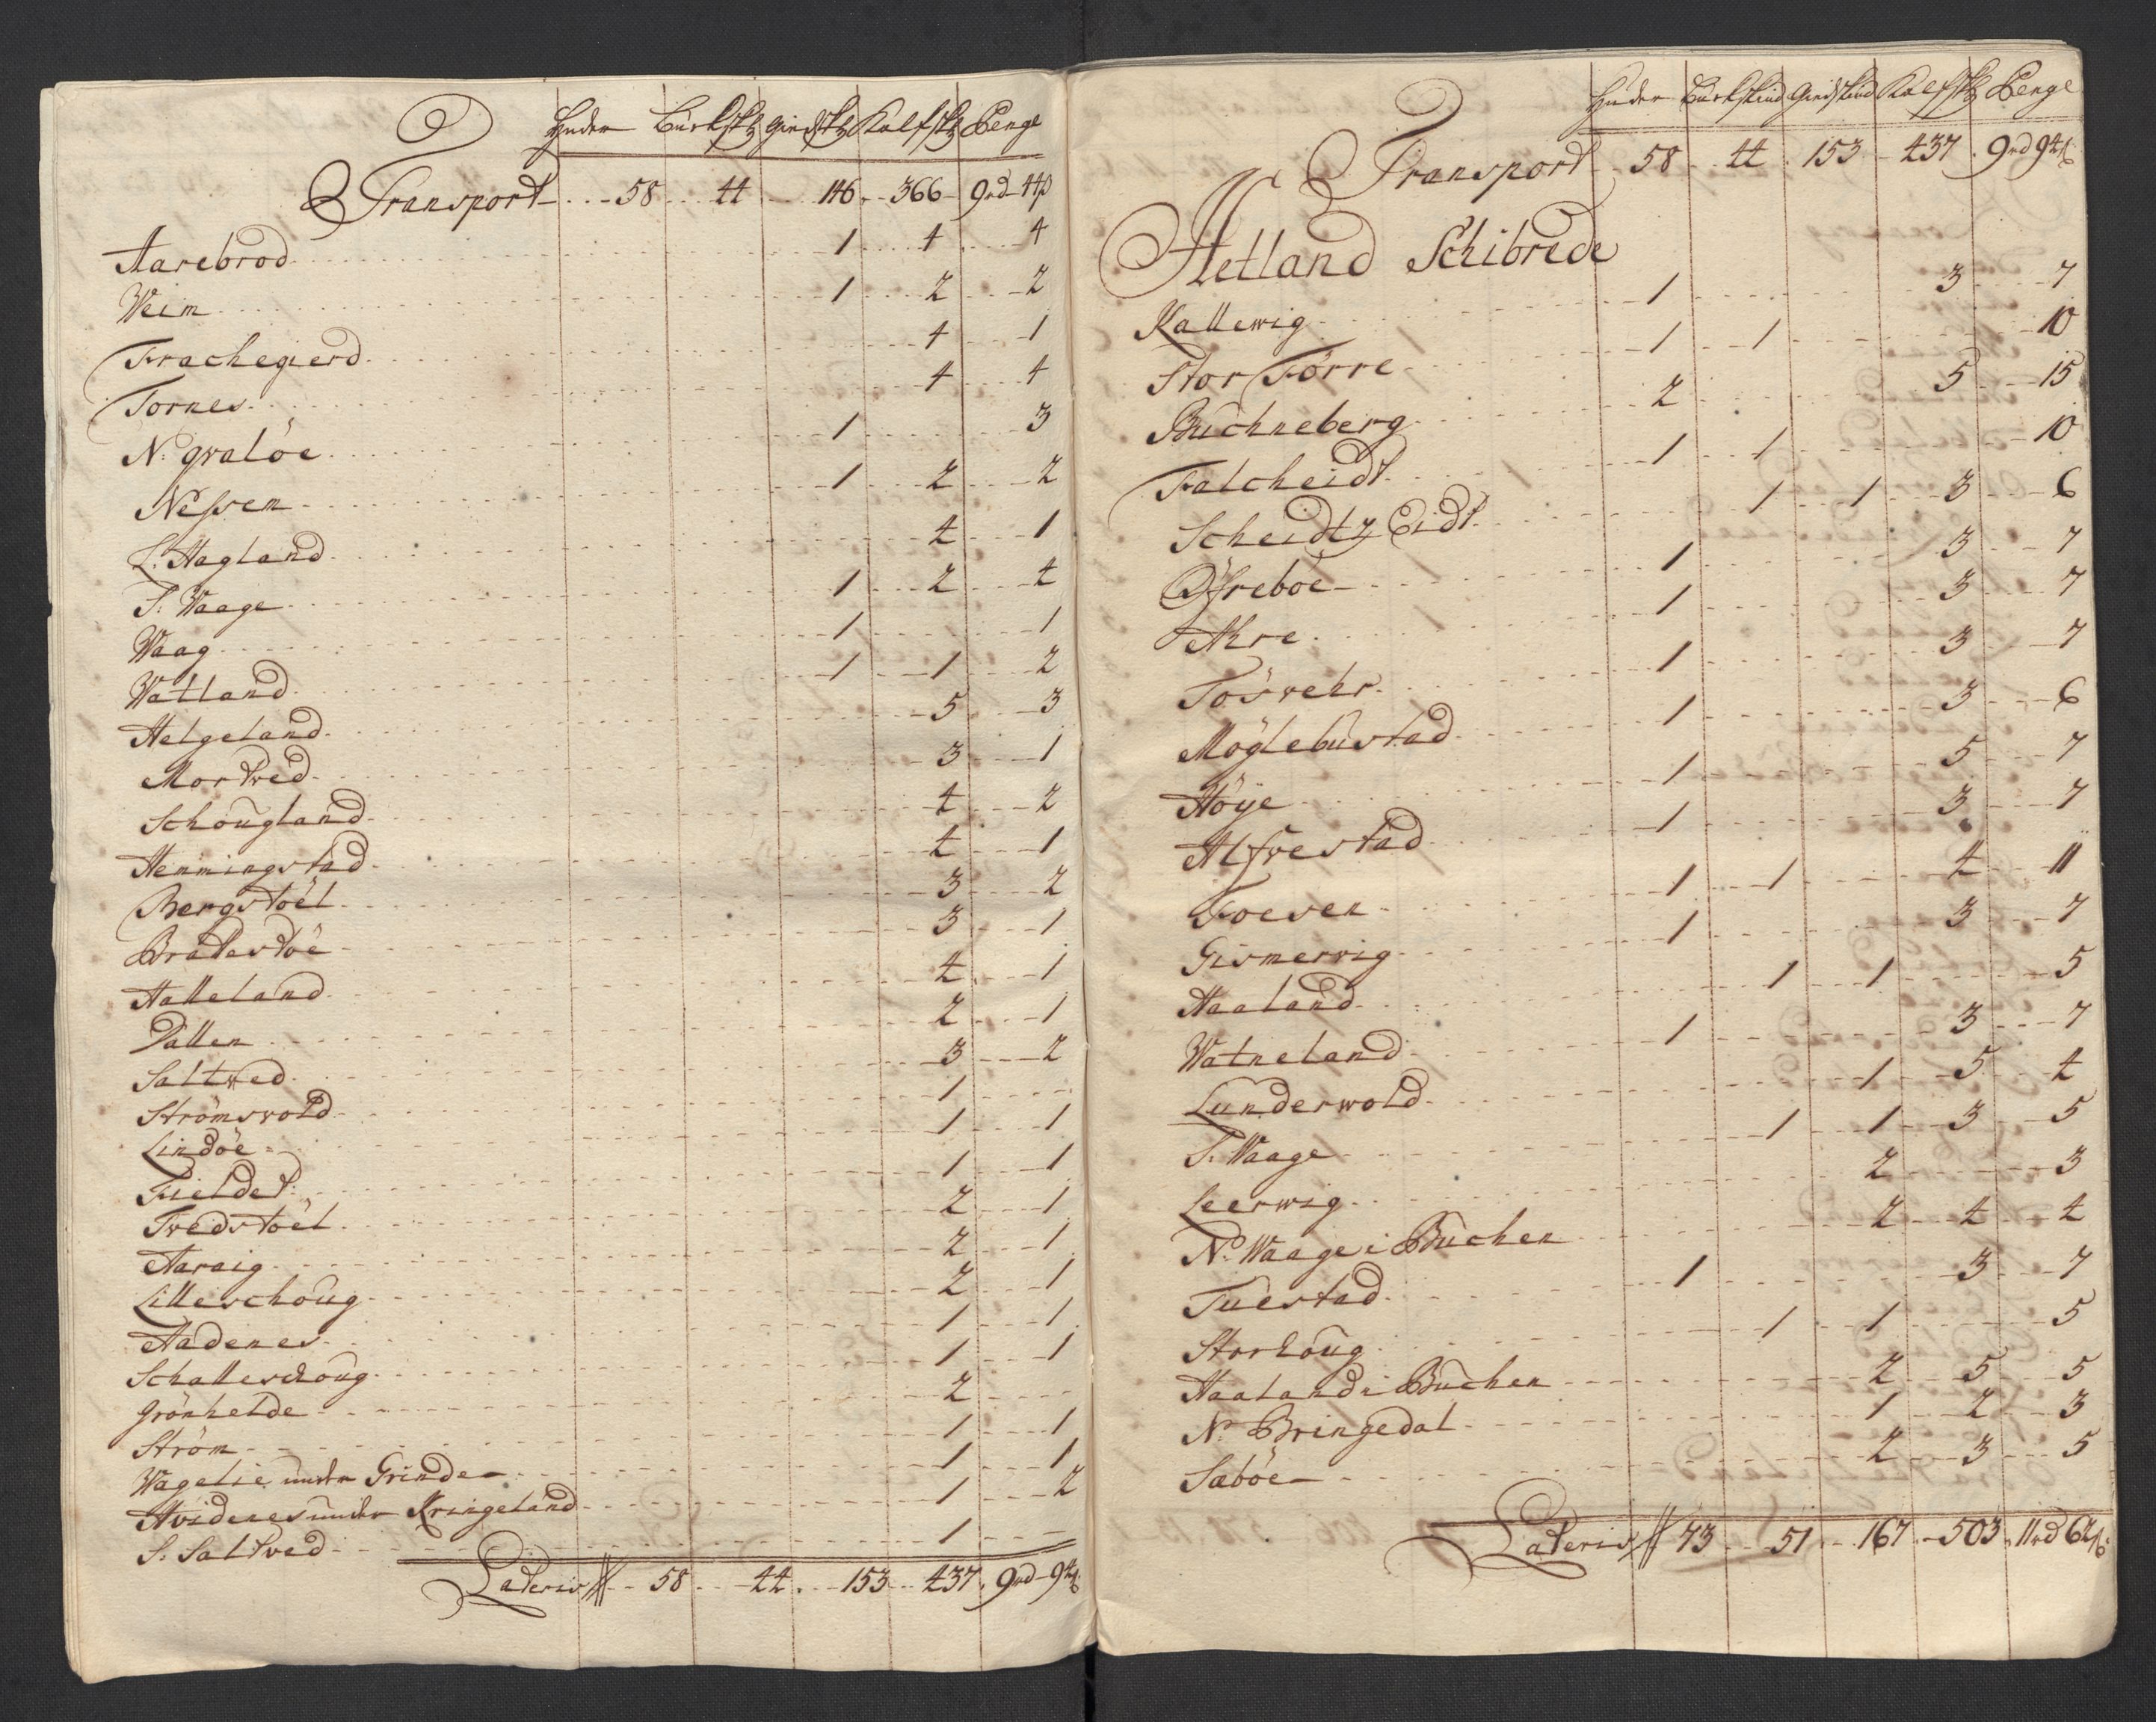 Huder Buckskz Giedskz Kalfskz Penge
Transport 58 44 146 366 9rd 44ß
Aarebrod 1 4 4
Weim 1 2 2
Frachegierd 4 1
Tornes 4 4
N. gvaløe 1 3
Nessen 1 2 2
L. Hagland 4 1
S. Waage 1 2 4
Waag 1 1
Watland 1 1 2
Helgeland 5 3
Mortved 3 1
Schougland 4 2
Hemmingstad 4 1
Bergstöel 3 2
Bratestöe 3 1
Halleland 4 1
Dallen 2 1
Saltwed 3 2
Strömsvold 1
Lindöe 1 1
Fieldet 1 1
Tvedstöel 2 1
Aaraig 2 1
Lilleschoug 2 1
Aadenes 1 1
Schalleschoug 1 1
Grönhelde 2
Ström 1 1
Wagelie under Grinde 1 1
Hvidenes under Kringeland 1 2
S. Saltved 1
Lateris 58 44 153 437 9rd 94ß
Huder Buckskind Giedskind Kalfskz Penge
Transport 58 44 153 437 9rd 94ß
Hetland Schibrede
Kallewig 1 3 7
Stor Förre 1 1 10
Buchneberg 2 5 15
Falcheidt 1 1 10
Scheidtz Eidt 1 1 3 6
Öfreböe 1 3 7
Ahre 1 3 7
Tösvehr 1 3 7
Möglebustad 1 3 6
Höye 1 5 7
Alfvestad 1 3 7
Foesen 1 1 4 11
Gismervig 1 3 7
Haaland 1 1 5
Watneland 1 3 7
Lunderwold 1 5 4
S. Waage 1 1 3 5
Leerwig 2 3
N. Waage i Buchen 2 4 4
Tuestad 1 3 7
Storhoug 1 1 5
Haaland i Buchen 2 5 5
N. Bringedal 1 2 3
Sæböe 2 3 5
Lateris 73 51 167 503 11rd 62ß